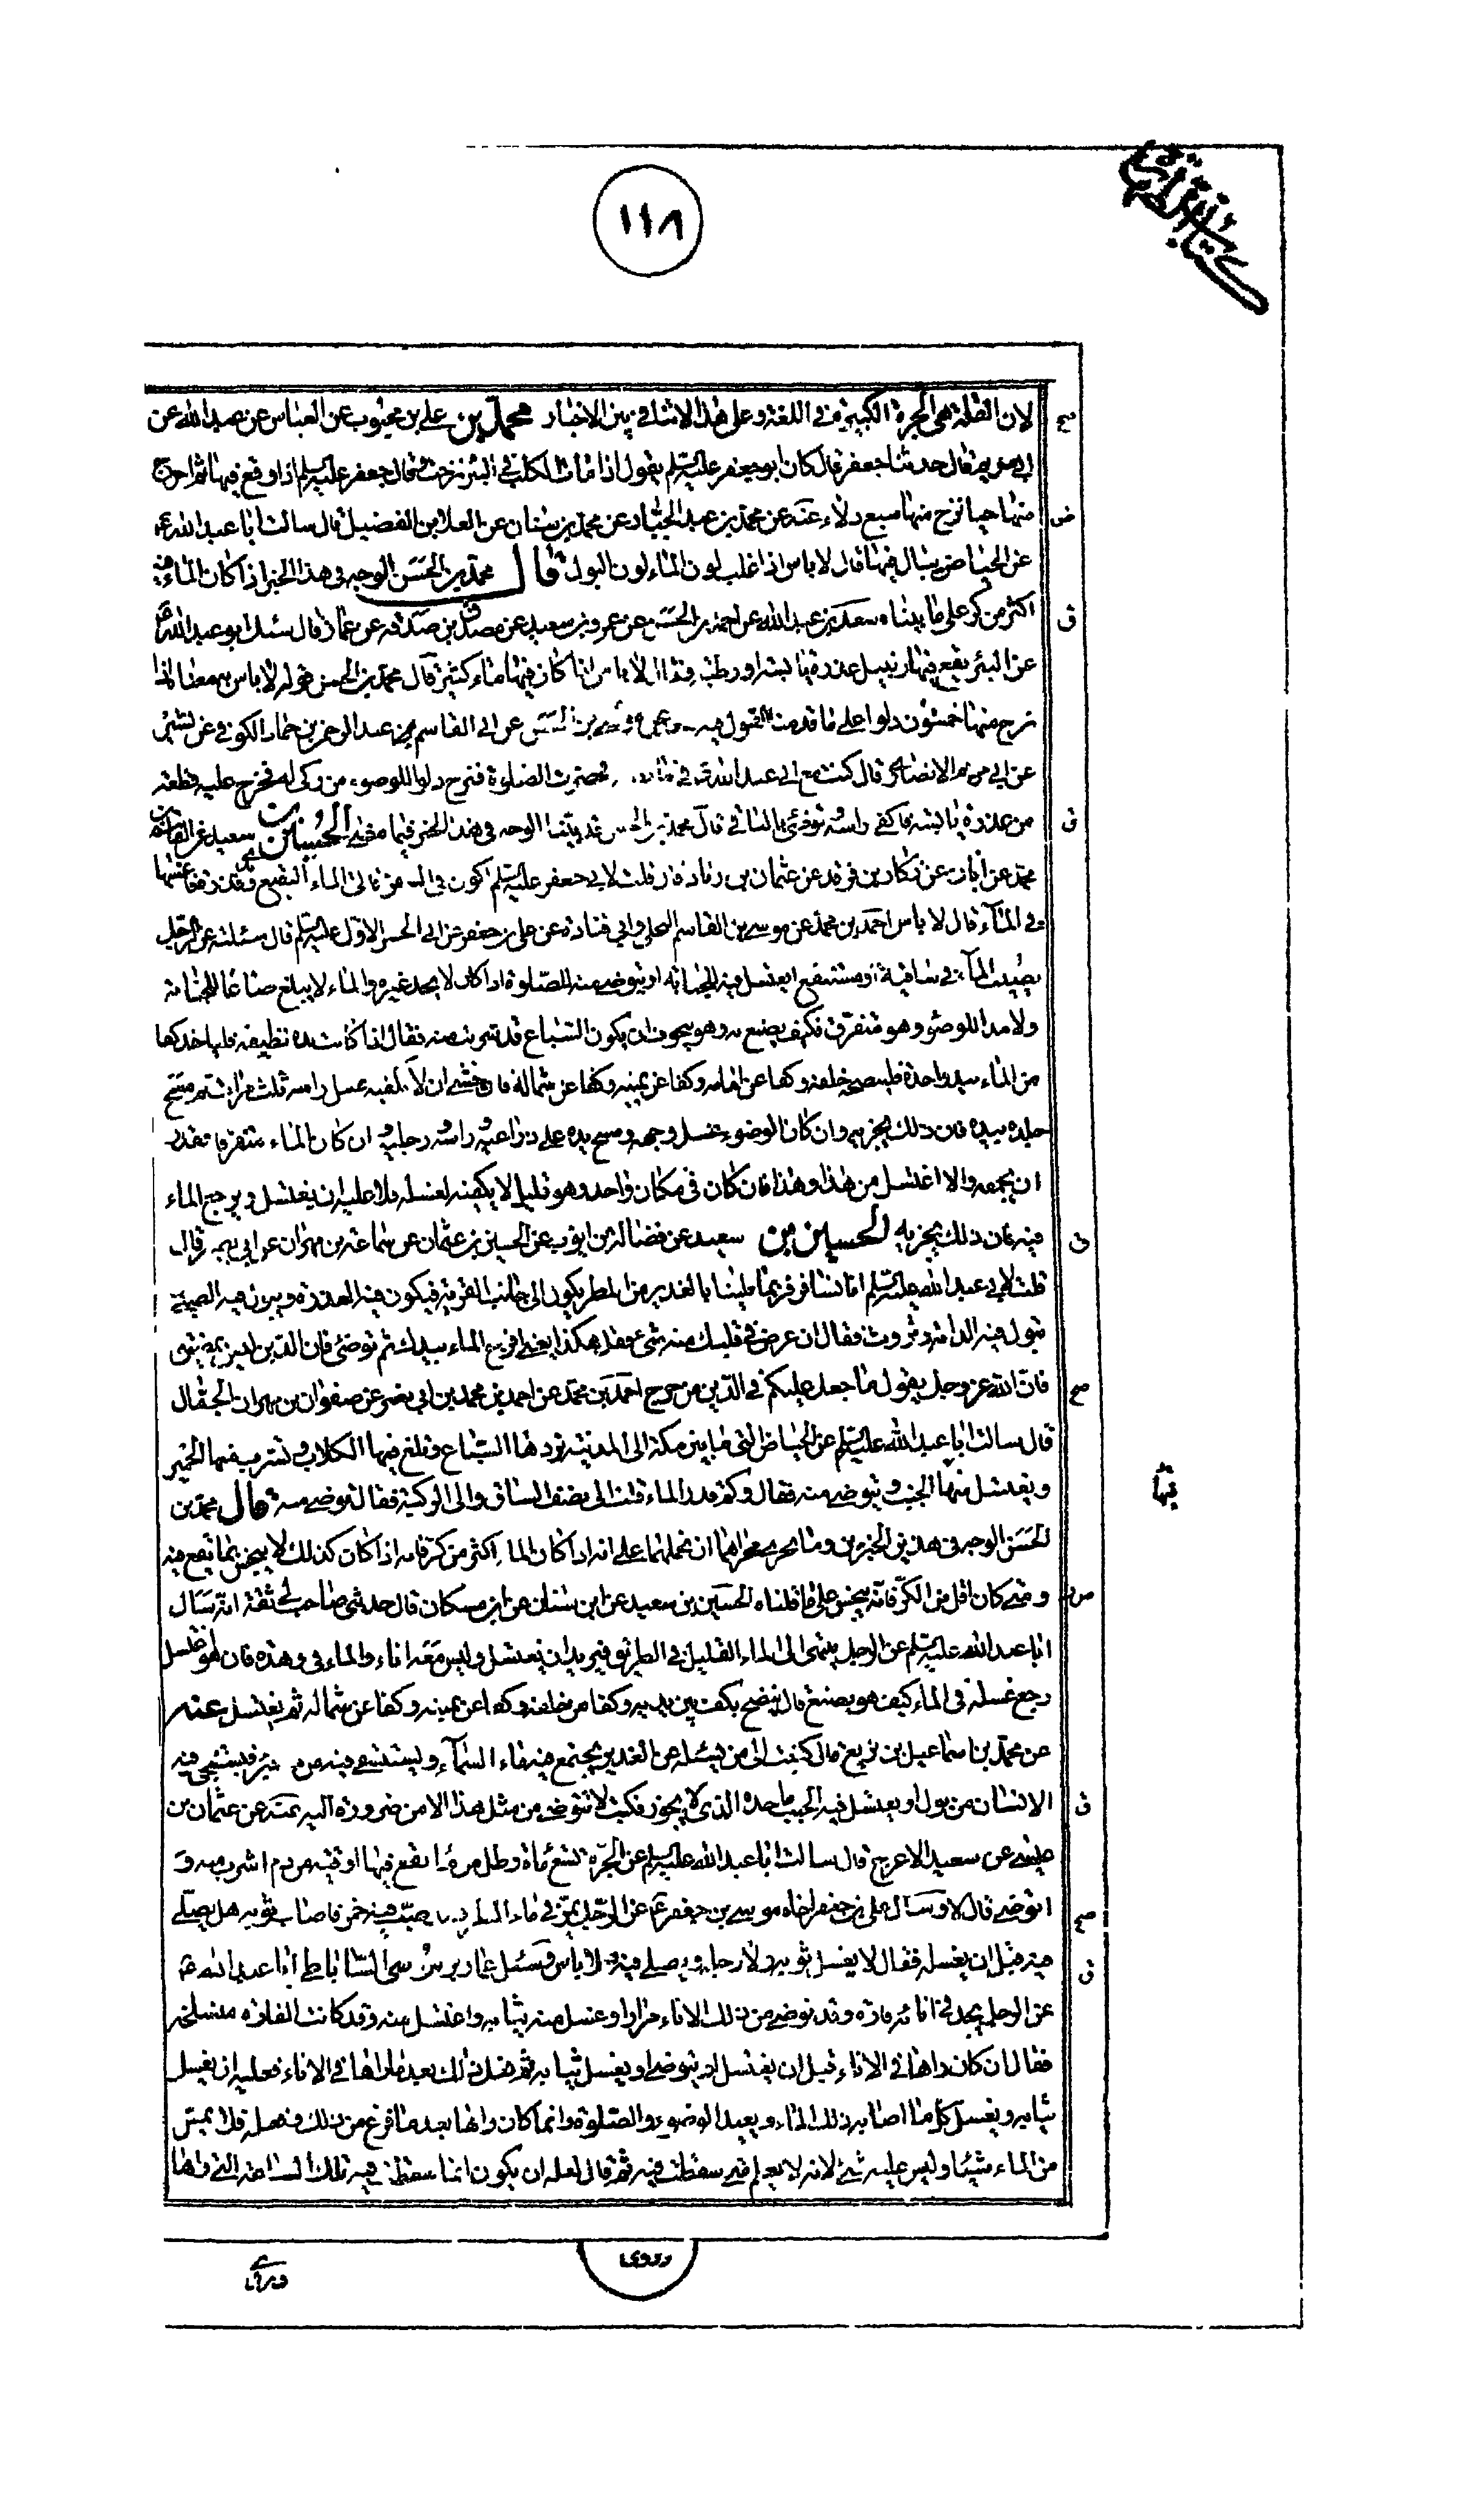 كتاب الطهارة
١١٨
لان القلة هي الجرة الكبيرة في اللغة وعلى هذا لا تنافي بين الاخبار محمد بن علي بن محبوب عن العباس عن عبد الله عن
ابي مريم قال حدثنا جعفر قال كان ابو جعفر عليه السلم يقول اذا مات الكلب في البئر نزحت وقال جعفر عليه السلم اذا وقع فيها ثم اخرج
منها حيا نزح منها سبع دلاء عنه عن محمد بن عبد الجبار عن محمد بن سنان عن العلا بن الفضيل قال سالت ابا عبد الله ع
عن الحياض يبال فيها قال لا باس اذا غلب لون الماء لون البول قال محمد بن الحسن الوجه في هذا الخبر اذا كان الماء فيه
اكثر من كر على ما بيناه سعد بن عبد الله عن احمد بن الحسن عن عمرو بن سعيد عن مصدق بن صدقه عن عمار قال سئل ابو عبد الله ع
عن البئر يقع فيها زنبيل عذرة يابسة او رطبة فقال لا باس اذا كان فيها ماء كثير قال محمد بن الحسن قوله لا باس به معناه اذا
نزح منها خمسون دلوا على ما قدمت القول فيه محمد بن الحسن عن ابي القاسم عبد الرحمن بن حماد الكوفي عن بشير
عن ابي مريم الانصاري قال كنت مع ابي عبد الله ع في حائط فحضرت الصلوة فنزح دلوا للوضوء من ركي له فخرج عليه قطعة
من عذرة يابسة فاكفى راسه وتوضئ بالباقي قال محمد بن الحسن قد بينا الوجه في هذا الخبر فيما مضى الحسين بن سعيد عن القاسم بن
محمد عن ابان عن زكار بن فرقد عن عثمان بن زياد قال قلت لابي جعفر عليه السلم اكون في السفر فاتي الماء النقيع ويدي قذرة فاغمسها
في الماء قال لا باس احمد بن محمد عن موسى بن القاسم البجلي وابي قتادة عن علي بن جعفر عن ابي الحسن الاول عليه السلم قال سئلته عن الرجل
يصيب الماء في ساقية او مستنقع ايغتسل منه للجنابة او يتوضى منه للصلوة اذا كان لا يجد غيره والماء لا يبلغ صاعا للجنابة
ولا مدا للوضوء وهو متفرق فكيف يصنع به وهو يتخوف ان يكون السباع قد شربت منه فقال اذا كانت يده نظيفة فلياخذ كفا
من الماء بيد واحدة فلينضحه خلفه وكفا عن امامه وكفا عن يمينه وكفا عن شماله فان خشى ان لا يكفيه غسل راسه ثلث مرات ثم مسح
جلده بيده فان ذلك يجزيه وان كان الوضوء غسل وجهه ومسح يده على ذراعيه وراسه ورجليه وان كان الماء متفرقا فقدر
ان يجمعه والا اغتسل من هذا وهذا فان كان في مكان واحد وهو قليل لا يكفيه لغسله فلا عليه ان يغتسل ويرجع الماء
فيه فان ذلك يجزيه الحسين بن سعيد عن فضالة بن ايوب عن الحسين بن عثمان عن سماعة بن مهران عن ابي بصير قال
قلت لابي عبد الله عليه السلم انا نسافر فربما بلينا بالغدير من المطر يكون الى جانب القرية فيكون فيه العذرة ويبول فيه الصبي و
تبول فيه الدابة وتروث فقال ان عرض في قلبك منه شئ فقل هكذا يعني افرج الماء بيدك ثم توضئ فان الدين ليس بمضيق
فان الله عز وجل يقول ما جعل عليكم في الدين من حرج احمد بن محمد عن احمد بن محمد بن ابي نصر عن صفوان بن مهران الجمال
قال سالت ابا عبد الله عليه السلم عن الحياض التي ما بين مكة الى المدينة تردها السباع وتلغ فيها الكلاب وتشرب منها الحمير
ويغتسل منها الجنب ويتوضى منه فقال وكم قدر الماء قلت الى نصف الساق والى الركبة فقال توضى منه قال محمد بن
الحسن الوجه في هذين الخبرين وما يجرى مجراهما ان نحملهما على انه اذا كان الماء اكثر من كر فانه اذا كان كذلك لا ينجس بما يقع فيه
ومتى كان اقل من الكر فانه ينجس على ما قلناه الحسين بن سعيد عن ابن سنان عن ابن مسكان قال حدثني صاحب لي ثقة انه سال
ابا عبد الله عليه السلم عن الرجل ينتهى الى الماء القليل في الطريق فيريد ان يغتسل وليس معه اناء والماء في وهدة فان هو اغتسل
رجع غسله في الماء كيف هو يصنع قال ينضح بكف بين يديه وكفا من خلفه وكفا عن يمينه وكفا عن شماله ثم يغتسل عنه
عن محمد بن اسماعيل بن بزيع قال كتبت الى من يسئله عن الغدير يجتمع فيه ماء السماء ويستسقى فيه من بئر فيستنجى فيه
الانسان من بول او يغتسل فيه الجنب ما حده الذي لا يجوز فكتب لا تتوضى من مثل هذا الا من ضرورة اليه عنه عن عثمان بن
عيسى عن سعيد الاعرج قال سالت ابا عبد الله عليه السلم عن الجرة تسع مأة رطل من ماء يقع فيها اوقية من دم اشرب منه و
اتوضى قال لا وسال علي بن جعفر اخاه موسى بن جعفر ع عن الرجل يمر في ماء المطر وقد صب فيه خمر فاصاب ثوبه هل يصلى
فيه قبل ان يغسله فقال لا يغسل ثوبه ولا رجله ويصلي فيه ولا باس وسئل عمار بن موسى الساباطي ابا عبد الله ع
عن الرجل يجد في انائه فارة وقد توضى من ذلك الاناء مرارا وغسل منه ثيابه واغتسل منه وقد كانت الفارة منسلخة
فقال ان كان راها في الاناء قبل ان يغتسل او يتوضى او يغسل ثيابه ثم فعل ذلك بعد ما راها في الاناء فعليه ان يغسل
ثيابه ويغسل كل ما اصابه ذلك الماء ويعيد الوضوء والصلوة وانما كان راها بعد ما فرغ من ذلك وفعله فلا يمس
من الماء شيئا وليس عليه شئ لانه لا يعلم متى سقطت فيه ثم قال لعله ان يكون انما سقطت فيه تلك الساعة التي راها
صح
ض
ق
ق
ق
صح
ق
صح
ق
فيها